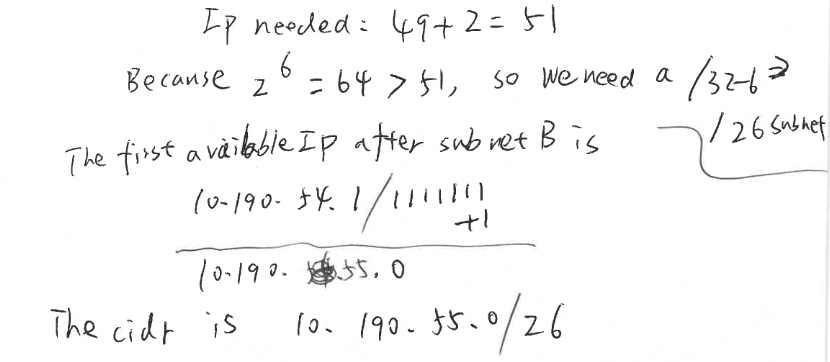 Ip needed: 49+2=51
Because 2^6 = 64 > 51, so we need a /32-6 ⇒
/26 subnet
The first available Ip after subnet B is
10.190.54.1/1111111
+1
10.190.55.0
The cidr is 10.190.55.0/26